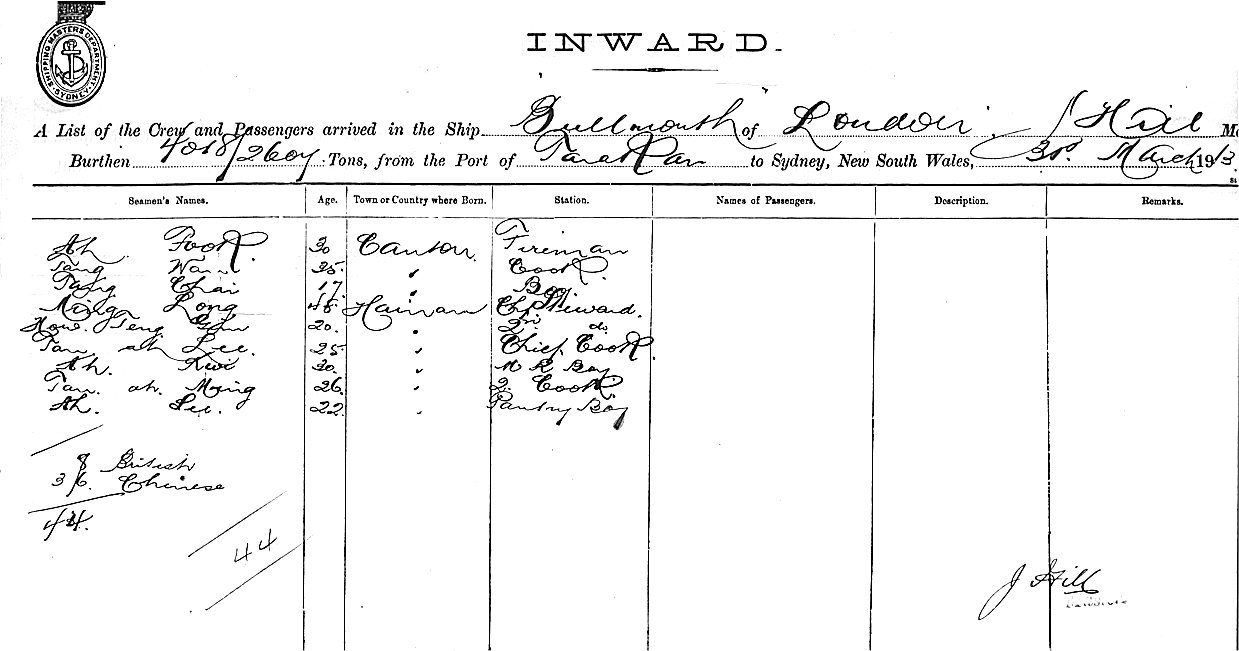 SHIPPING MASTERS DEPARTMENT · SYDNEY ·
INWARD.
A List of the Crew and Passengers arrived in the Ship Bullmouth of London, J Hill
Burthen 4018/2607 Tons, from the Port of Tarakan to Sydney, New South Wales, March 1913
Seamen's Names. Age. Town or Country where Born. Station. Names of Passengers. Description. Remarks.
Ah Fook 30 Canton Fireman
Tang Wan 25 " Cook
Tang Chai 17 " Boy
Ming Long 48 Hainan Ch Steward.
How Teng 20 " 2nd do
Tan ah Lee. 25 " Chief Cook
Ah. Kwi 20. " M R Boy
Tan. ah. Ming 26 " 2. Cook
Ah. Lee. 22 " Pantry Boy
8 British
36. Chinese
44.
44
J Hill